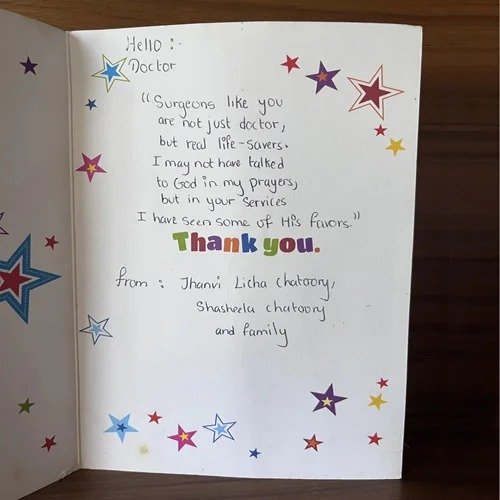 Hello :-
Doctor
"Surgeons like you
are not just doctor,
but real life-savers.
I may not have talked
to God in my prayers,
but in your services
I have seen some of His favors."
Thank you.
from : Jhanvi Licha chatoory,
Shasheela chatoory
and family